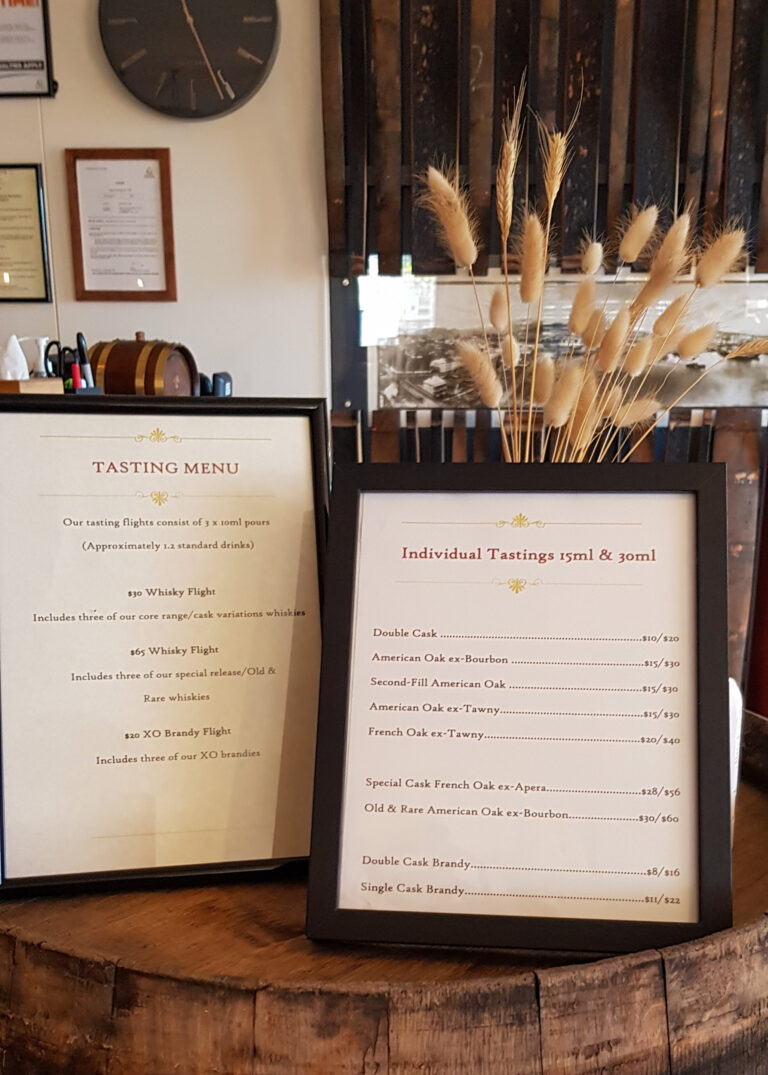 TASTING MENU
Our tasting flights consist of 3 x 10ml pours
(Approximately 1.2 standard drinks)
$30 Whisky Flight
Includes three of our core range/cask variations whiskies
$65 Whisky Flight
Includes three of our special release/Old &
Rare whiskies
$20 XO Brandy Flight
Includes three of our XO brandies
Individual Tastings 15ml & 30ml
Double Cask ....................$10/$20
American Oak ex-Bourbon ....................$15/$30
Second-Fill American Oak ....................$15/$30
American Oak ex-Tawny....................$15/$30
French Oak ex-Tawny....................$20/$40
Special Cask French Oak ex-Apera....................$28/$56
Old & Rare American Oak ex-Bourbon....................$30/$60
Double Cask Brandy....................$8/$16
Single Cask Brandy....................$11/$22